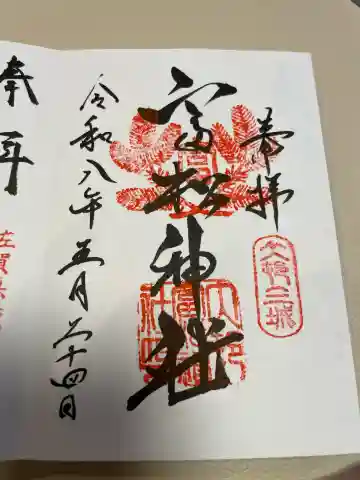 奉拝
大村三城
富松神社
令和八年五月二十四日
奉拝
佐賀